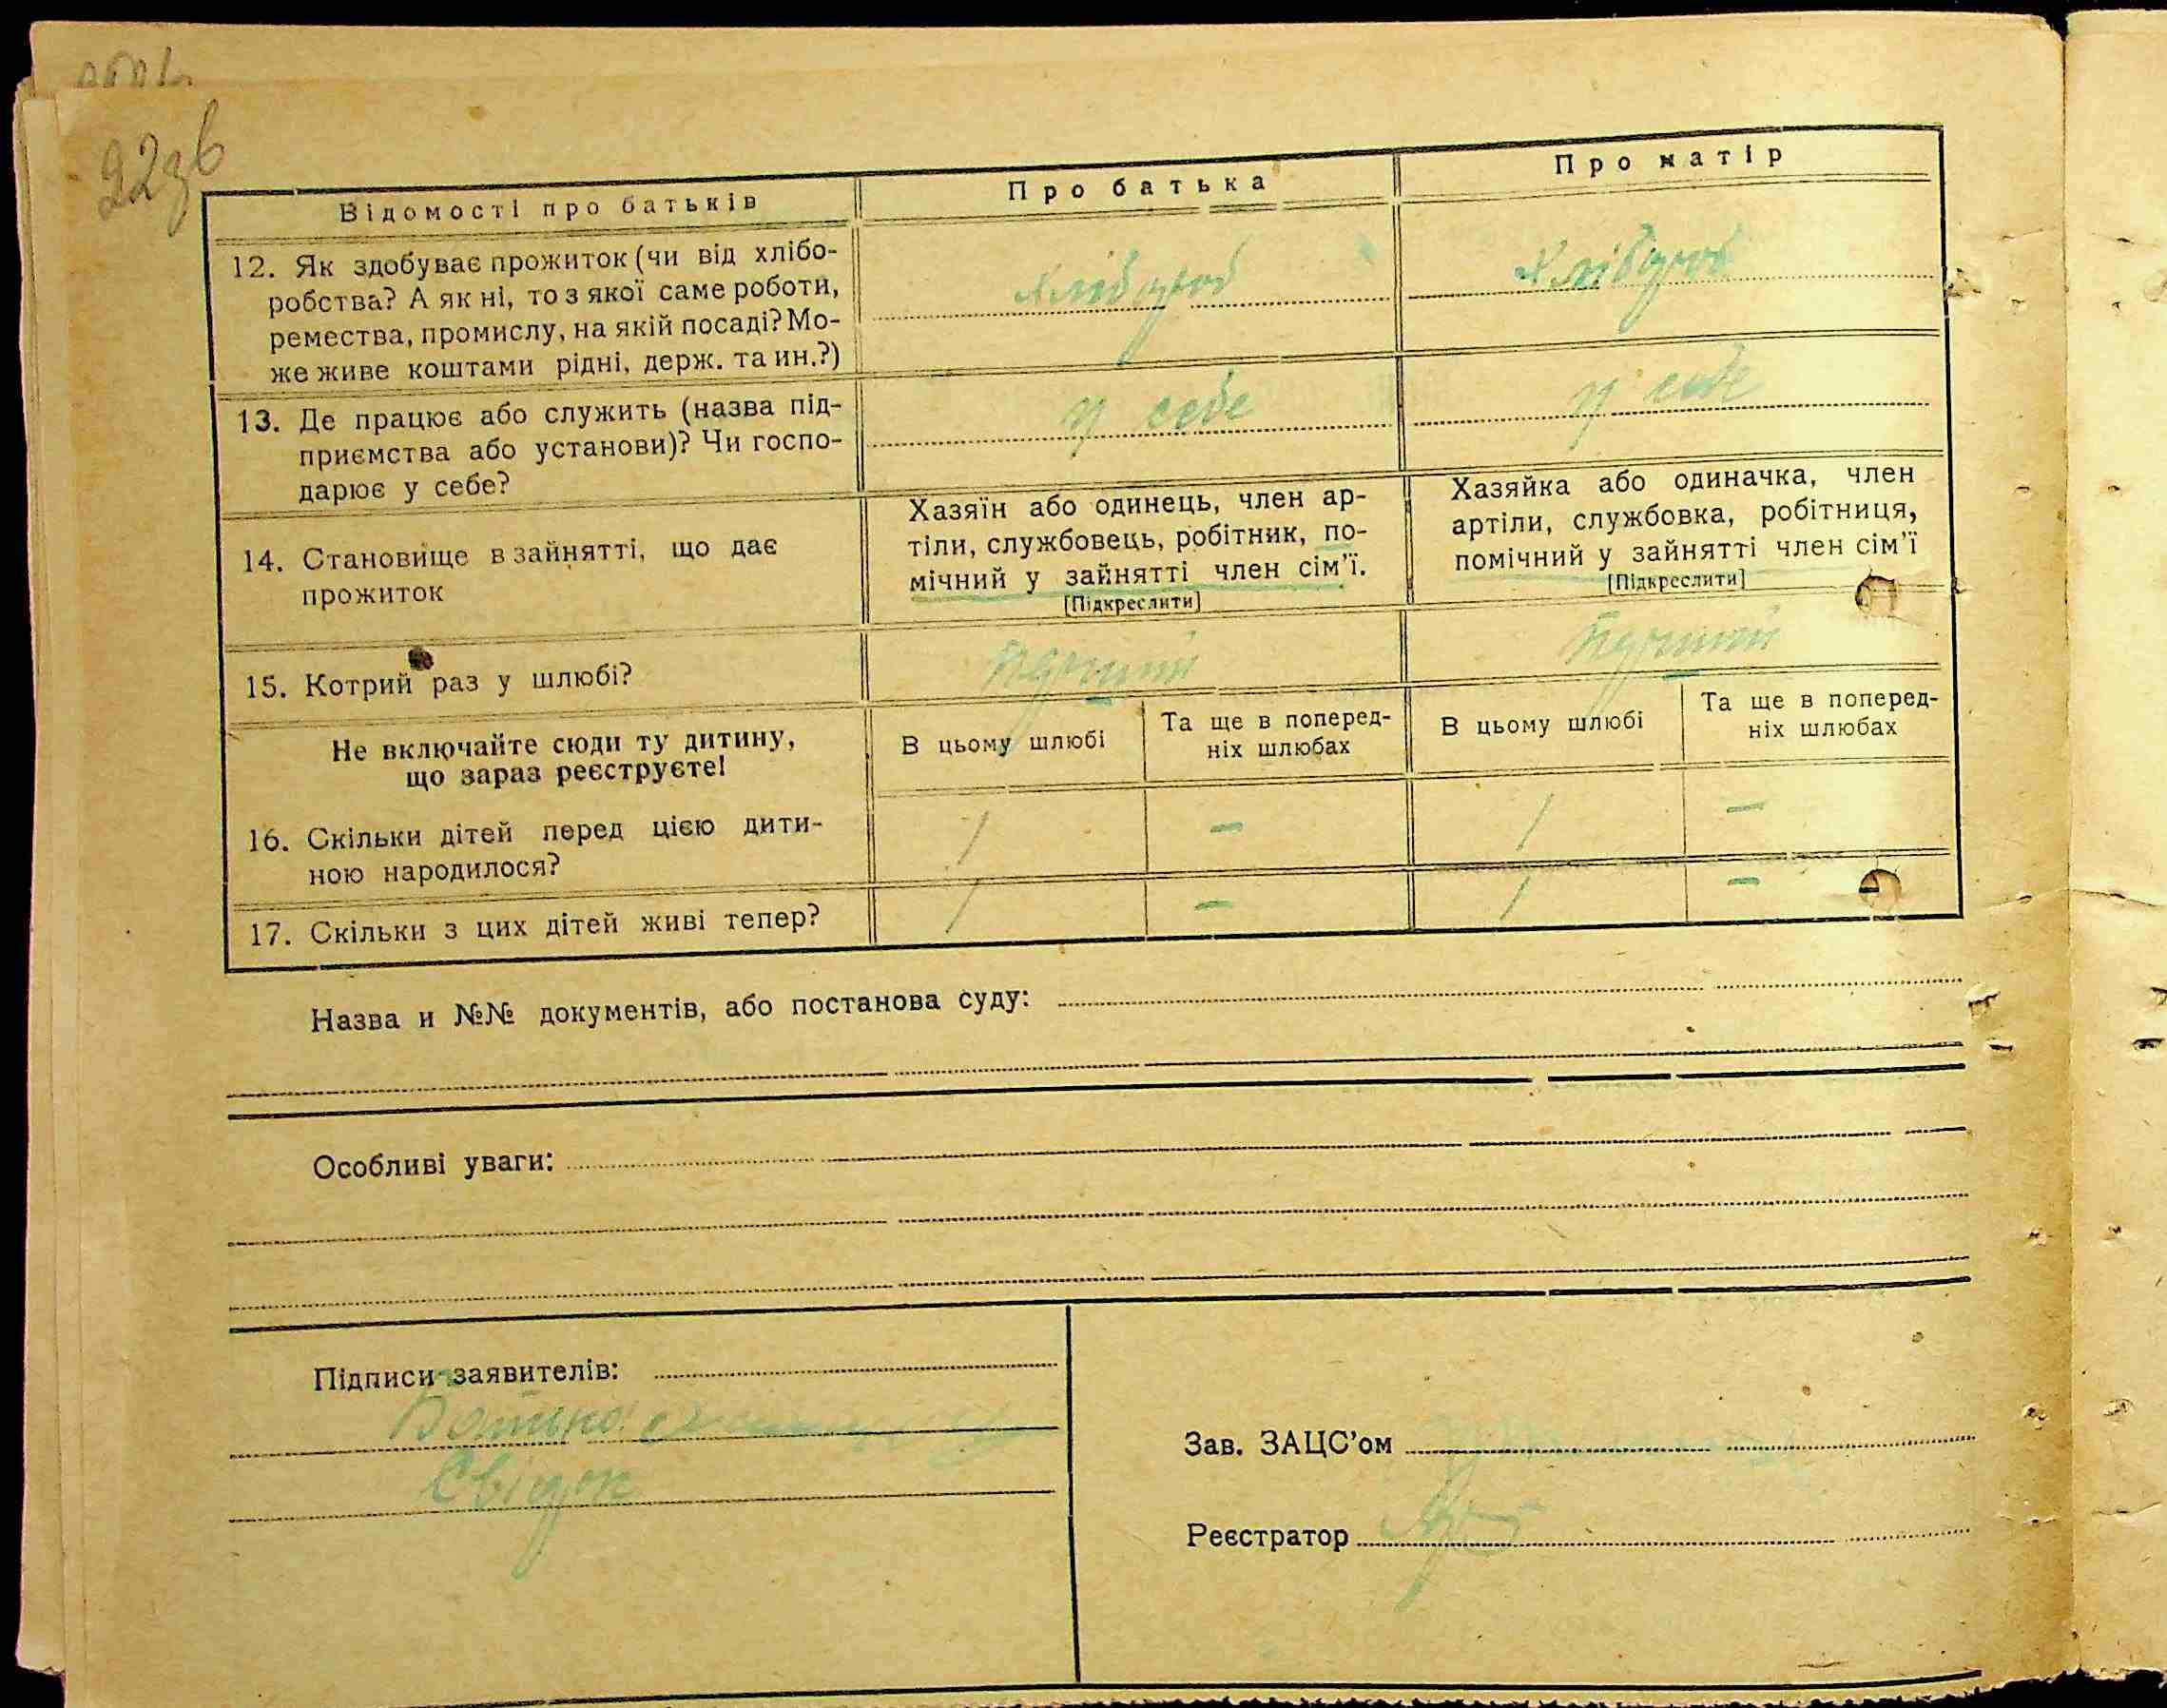 22зв
Відомості про батьків
Про батька
Про матір
12. Як здобуває прожиток (чи від хлібо-
робства? А як ні, то з якої саме роботи,
ремества, промислу, на якій посаді? Мо-
же живе коштами рідні, держ. та ин.?)
хлібороб
хлібороб
13. Де працює або служить (назва під-
приємства або установи)? Чи госпо-
дарює у себе?
у себе
у себе
14. Становище в зайнятті, що дає
прожиток
Хазяїн або одинець, член ар-
тіли, службовець, робітник, по-
мічний у зайнятті член сім'ї.
[Підкреслити]
Хазяйка або одиначка, член
артіли, службовка, робітниця,
помічний у зайнятті член сім'ї
[Підкреслити]
15. Котрий раз у шлюбі?
Не включайте сюди ту дитину,
що зараз реєструєте!
В цьому шлюбі
Та ще в поперед-
ніх шлюбах
В цьому шлюбі
Та ще в поперед-
ніх шлюбах
16. Скільки дітей перед цією дити-
ною народилося?
1 — 1 —
17. Скільки з цих дітей живі тепер?
1 — 1 —
Назва и №№ документів, або постанова суду:
Особливі уваги:
Підписи заявителів:
Батько
Свідок
Зав. ЗАЦС'ом
Реєстратор